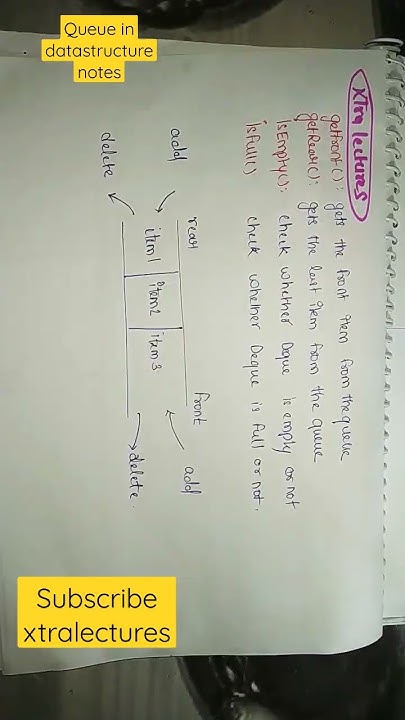 Queue in
datastructure
notes
Xtra lectures
getfront(): gets the front item from the queue
getRear(): gets the last item from the queue
IsEmpty(): check whether Deque is empty or not
IsFull() check whether Deque is full or not.
rear front
add add
item1 item2 item3
delete delete.
Subscribe
xtralectures